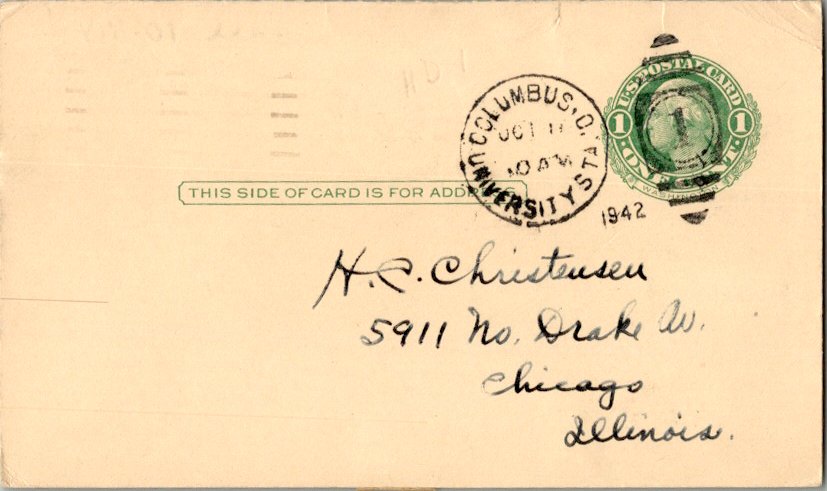 U.S. POSTAL CARD
1 1
WASHINGTON
COLUMBUS, O.
OCT 11
10 AM
UNIVERSITY STA.
1942
1
THIS SIDE OF CARD IS FOR ADDRESS
H. C. Christensen
5911 No. Drake Av.
Chicago
Illinois.